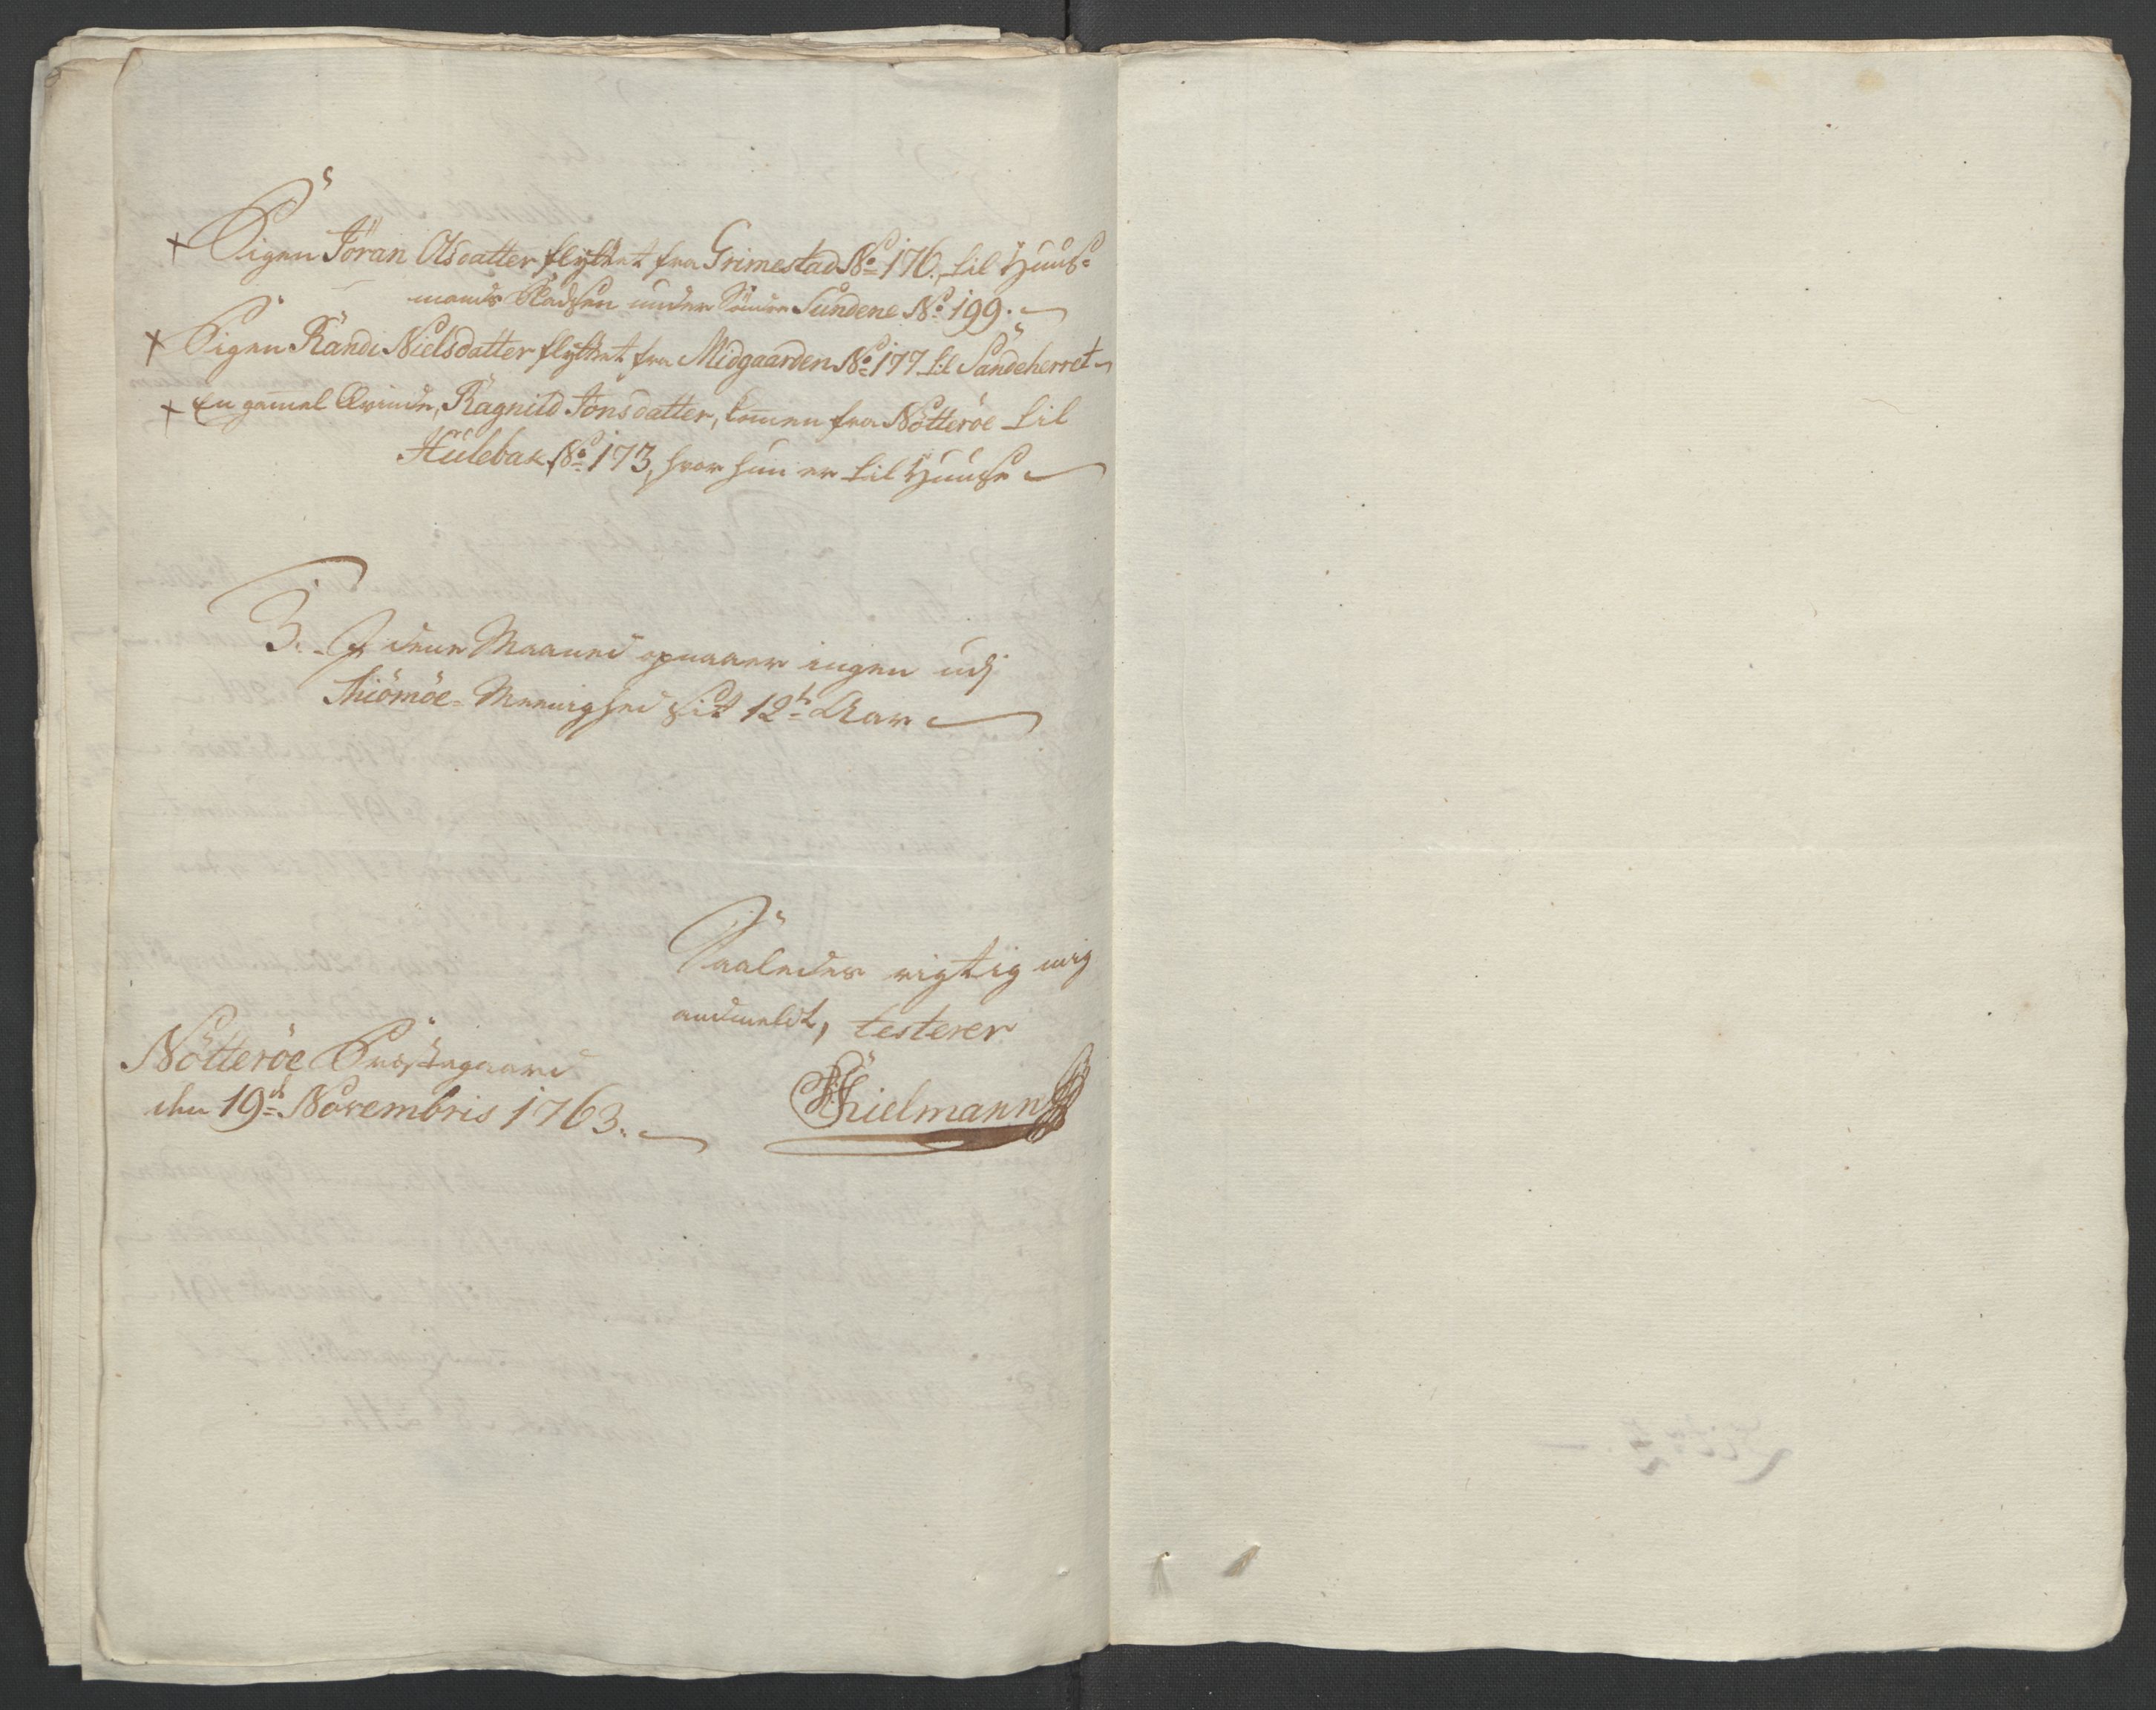 + Pigen Jöran Olsdatter flÿttet fra Grimestad No 176. til Huus-
mands Pladsen under Söndre Sundene No 199.
+ Pigen Randi Nielsdatter flÿttet fra Midgaarden No 177 til Sandeherret
+ En gamel Qvinde, Ragnild Jonsdatter, komen fra Nötteröe til
Hulebak No 173, hvor hun er til Huuse
3. I denne Maaned opnaaer ingen udj
Thiömöe-Meenighed sit 12te Aar
Saaledes rigtig mig
andmeldt, testerer
Nötteröe Præstegaard
den 19de Novembris 1763.
Thielmann